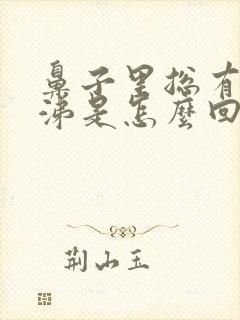 鼻子里总有
涕是怎麼回
荆山玉